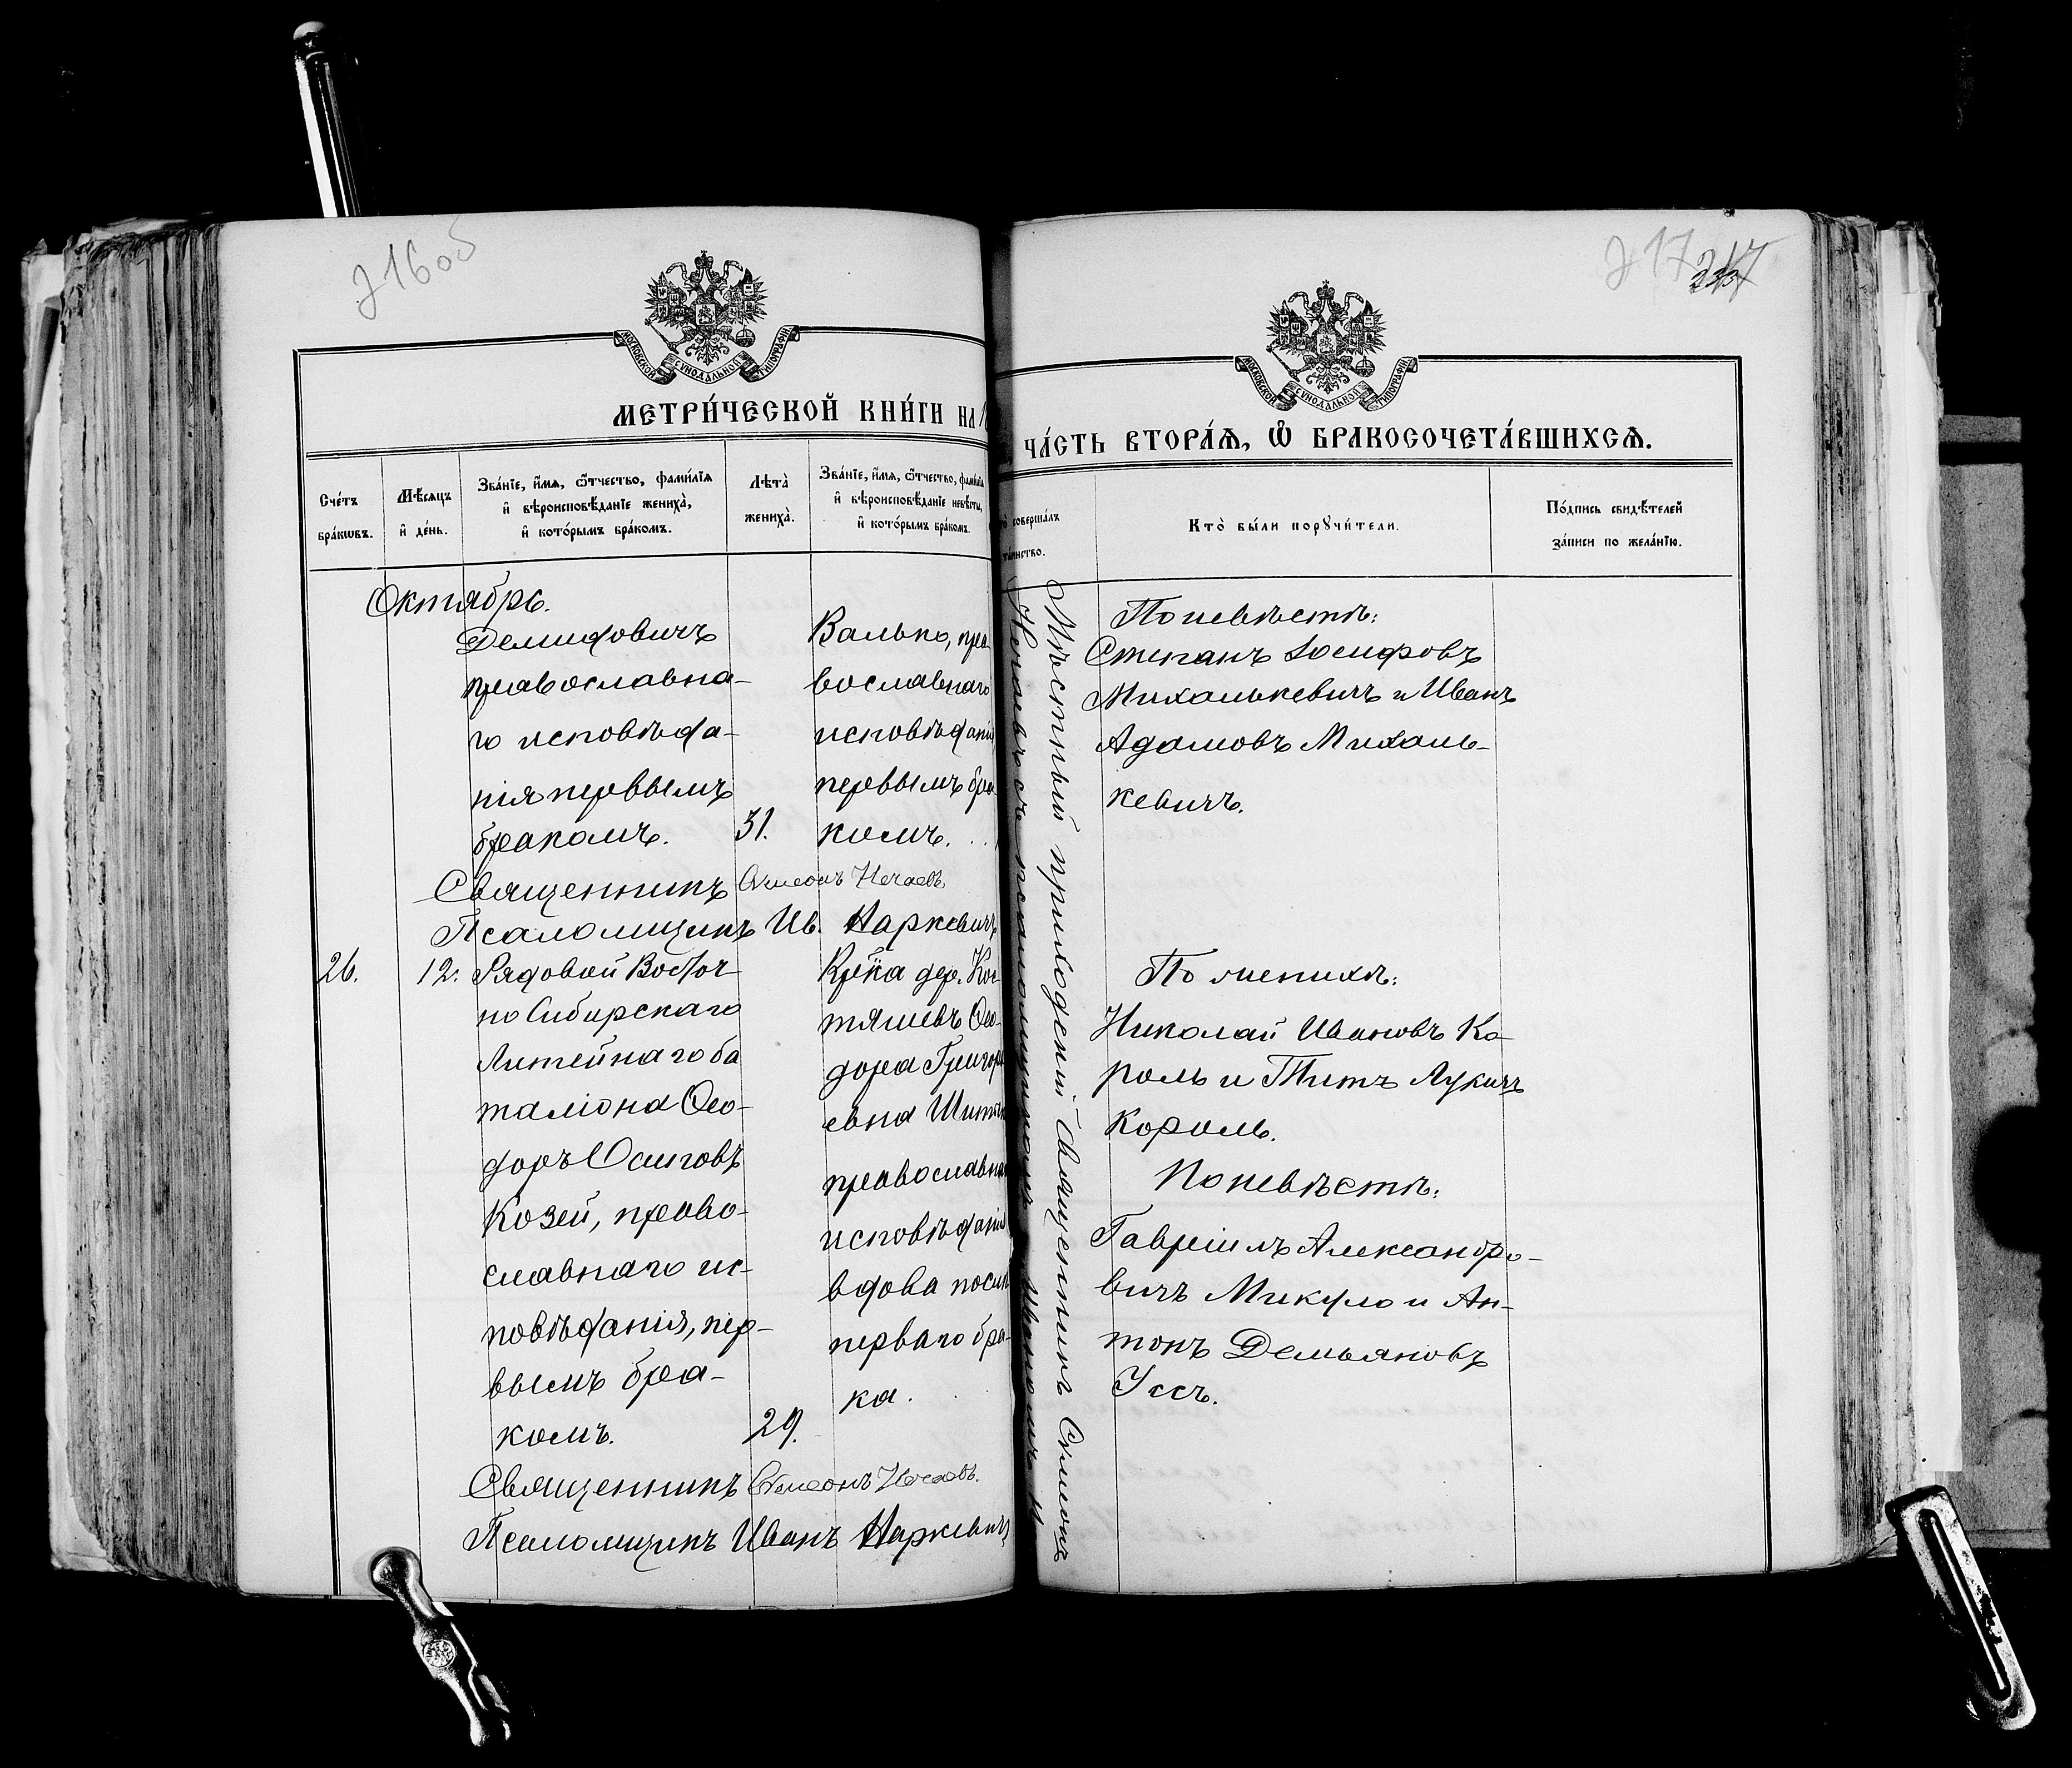 216об
МОСКОВСКОЙ СУНОДАЛЬНОЙ ТИПОГРАФІИ
МЕТРИ́ЧЕСКОЙ КНИ́ГИ НА
Сче́тъ бра́кѡвъ.
Мѣ́сяцъ и҆ де́нь.
Зва́нїе, и҆́мѧ, ѻ҆́тчество, фами́лїѧ
и҆ вѣроисповѣ́данїе жениха̀,
и҆ кото́рымъ бра́комъ.
Лѣ́та̀
жениха̀.
Зва́нїе, и҆́мѧ, ѻ҆́тчество, фами́лїѧ
и҆ вѣроисповѣ́данїе невѣ́сты,
и҆ кото́рымъ бра́комъ.
Октябрь.
Демидовичъ
православна-
го исповѣда-
нія первымъ
бракомъ.
31.
Валько, пра-
вославнаго
исповѣданія
первымъ бра-
комъ.
Священникъ Сѵмеонъ Нечаевъ
Псаломщикъ Ив. Наркевичъ
26.
12.
Рядовой Восточ
но Сибирскаго
Литейнаго ба
таліона Ѳео-
доръ Осиповъ
Козей, право-
славнаго ис-
повѣданія, пер-
вымъ бра-
комъ.
29.
Крⷭ҇ка дер. Кос-
тяшевъ Ѳео-
дора Григорь
евна
православна
исповѣданія
вдова послѣ
перваго бра-
ка.
Священникъ Сѵмеонъ Нечаевъ.
Псаломщикъ Иванъ Наркевичъ
217
МОСКОВСКОЙ СУНОДАЛЬНОЙ ТИПОГРАФІИ
ЧА́СТЬ ВТОРА́Ѧ, Ѽ БРАКОСОЧЕТА́ВШИХСѦ.
соверша́лъ
та́инство.
Кто̀ бы́ли порꙋчи́тели.
По́дпись свидѣ́телей
за́писи по жела́нїю.
Мѣстный приходскій Священникъ Сѵмеонъ
Нечаевъ съ псаломщикомъ Иваномъ Н
По невѣстѣ:
Степанъ Іосифовъ
Михалькевичъ и Иванъ
Адамовъ Михаль-
кевичъ.
По женихѣ:
Николай Ивановъ Ко
роль и Титъ Лукичъ
Король.
По невѣстѣ:
Гавріилъ Александро-
вичъ Микуло и Ан-
тонъ Демьяновъ
Уссъ.